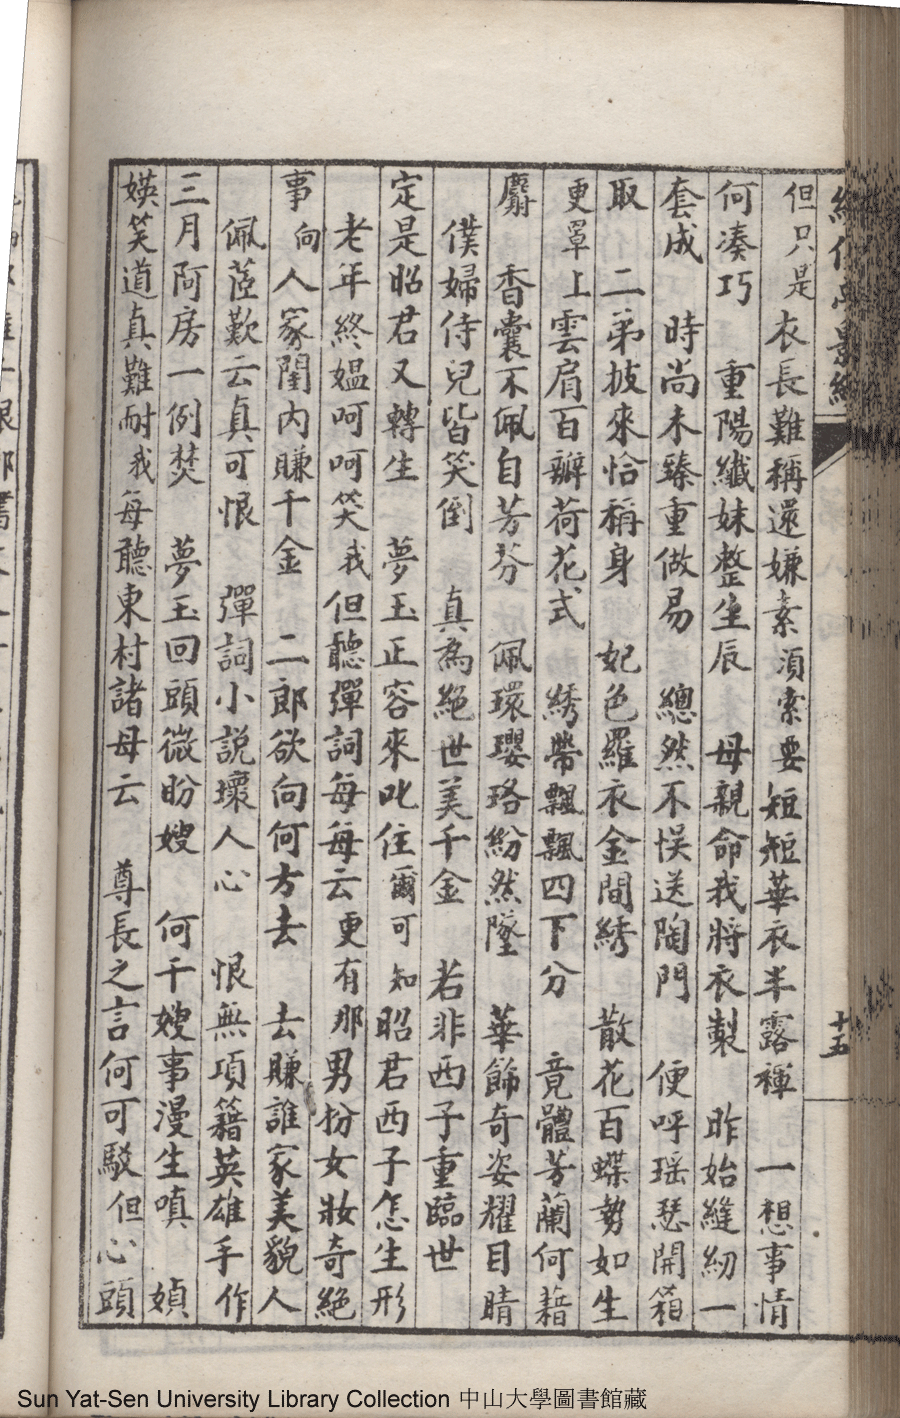 但只是衣長難稱還嫌素須索要短短華衣半露褌　一想事情
何凑巧　重陽纖妹整生辰　母親命我將衣製　昨始縫紉一
套成　時尚未臻重做易　總然不悞送陶門　便呼瑶瑟開箱
取　二弟披來恰稱身　妃色羅衣金間綉　散花百蝶勢如生
更罩上雲肩百瓣荷花式　綉帶飄飄四下分　竟體芳蘭何藉
麝　香囊不佩自芳芬　佩環瓔珞紛然墜　華飾奇姿耀目睛
僕婦侍兒皆笑倒　真為絕世美千金　若非西子重臨世
定是昭君又轉生　夢玉正容來叱住爾可知昭君西子怎生形
老年終媼呵呵笑我但聽彈詞每每云更有那男扮女妝奇絕
事向人家閨内賺千金　二郎欲向何方去　去賺誰家美貌人
佩蓙歎云真可恨　彈詞小説壞人心　恨無項籍英雄手作
三月阿房一例焚　夢玉回頭微盼嫂　何干嫂事漫生嗔　媜
媖笑道真難耐我每聽東村諸母云　尊長之言何可駁但心頭
十五
Sun Yat-Sen University Library Collection 中山大學圖書館藏